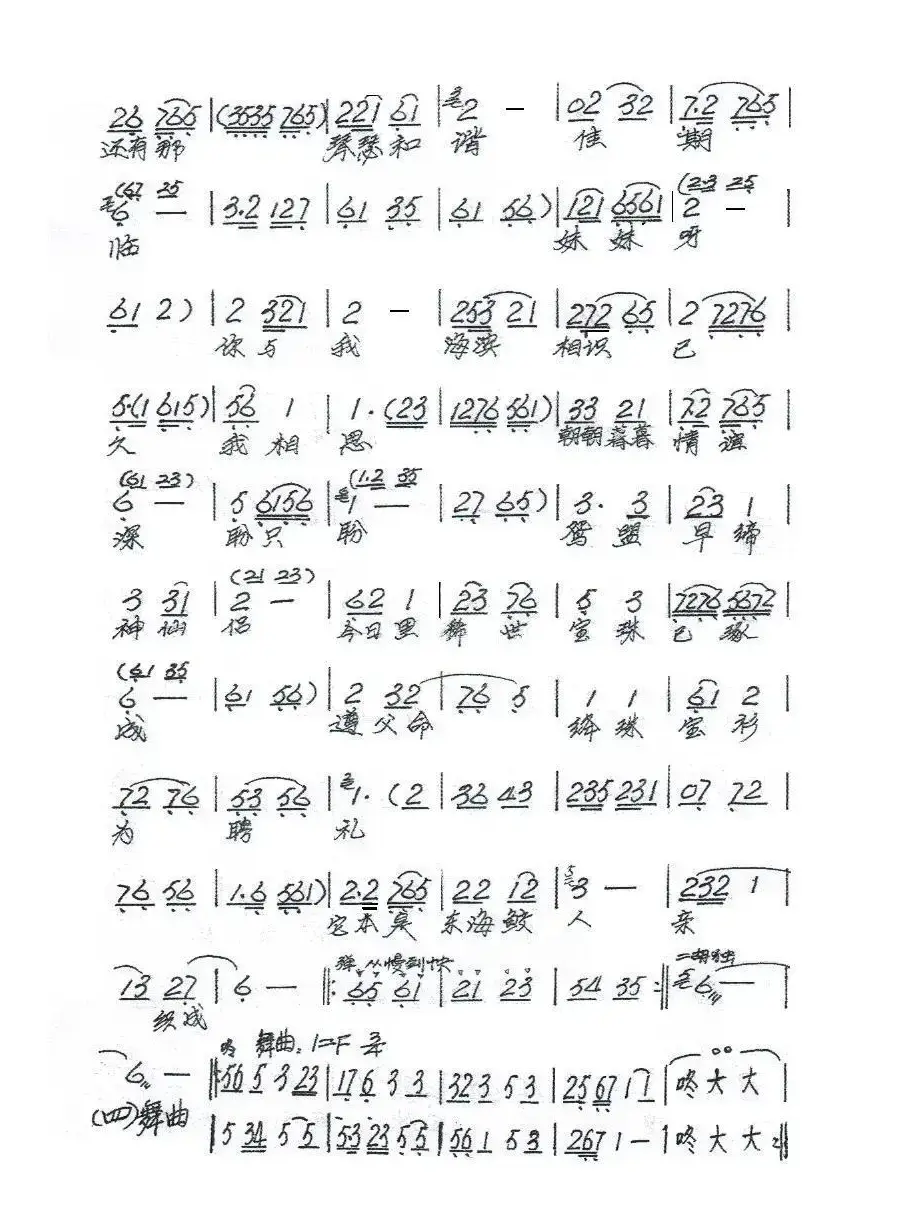 26 765 | (3535 765) | 221 61 | 2 — | 02 32 | 7·2 765 |
还有那 琴瑟和 谐 佳 期
(67 25
6 — | 3·2 127 | 61 35 | 61 56) | 121 6561 | 2 — |
(2·3 25
临 妹妹 呀
61 2) | 2 321 | 2 — | 253 21 | 272 65 | 2 7276 |
你与 我 海滨 相识 已
5·(1 615) | 56 1 | 1·(23 | 1276 561) | 33 21 | 7·2 765 |
久 我相 思 朝朝暮暮 情
(61 23) (1·2 35
6 — | 5 6156 | 1 — | 27 65) | 3· 3 | 23 1 |
深 盼只 盼 鸳盟 早缔
(21 23)
3 31 | 2 — | 62 1 | 23 76 | 5 3 | 7276 5672 |
神仙 侣 今日里 稀世 宝珠 已琢
(61 35
6 — | 61 56) | 2 32 | 76 5 | 1 1 | 61 2 |
成 遵父命 绛珠 宝衫
72 76 | 53 56 | 1·(2 | 36 43 | 235 231 | 07 72 |
为 聘 礼
76 56 | 1·6 561) | 2·2 765 | 22 12 | 3 — | 232 1
它本是 东海鲛 人 亲
弹 从慢到快 二胡独
13 27 | 6 — ‖: 65 61 | 21 23 | 54 35 :‖ 6 —
织成
舞曲:1=F
6 — ‖: 56 5 3 23 | 17 6 3 3 | 323 5 3 | 25 67 1 1 | 咚 大 大 |
(四)舞曲 | 5 34 5 5 | 53 23 5 5 | 56 1 5 3 | 267 1 — | 咚 大 大 :‖